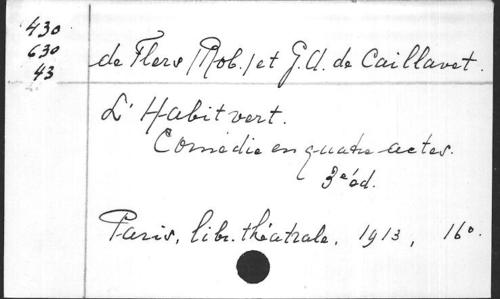 430
630
43
de Flers (Rob.) et G.A. de Caillavet.
L'Habit vert.
Comédie en quatre actes.
3e éd.
Paris, libr. théatrale, 1913, 16o.